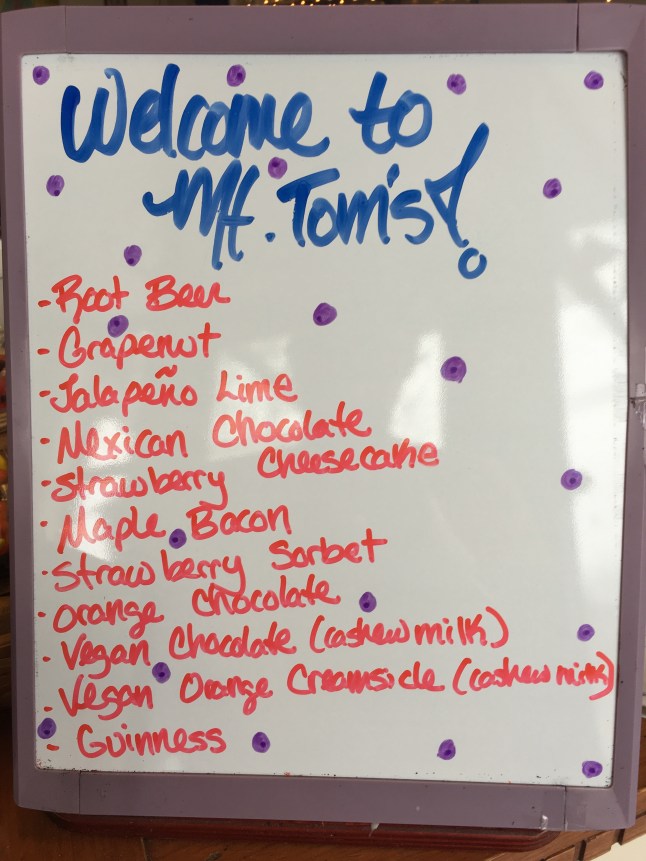 Welcome to
Mt. Tom's!
- Root Beer
- Grapenut
- Jalapeño Lime
- Mexican Chocolate
- Strawberry Cheesecake
- Maple Bacon
- Strawberry Sorbet
- Orange Chocolate
- Vegan Chocolate (cashew milk)
- Vegan Orange Creamsicle (cashew milk)
- Guinness